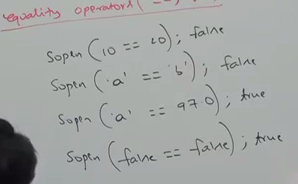 equality operators (==
Sopen (10 == 20); false
Sopen ('a' == 'b'); false
Sopen ('a' == 97.0); true
Sopen (false == false); true